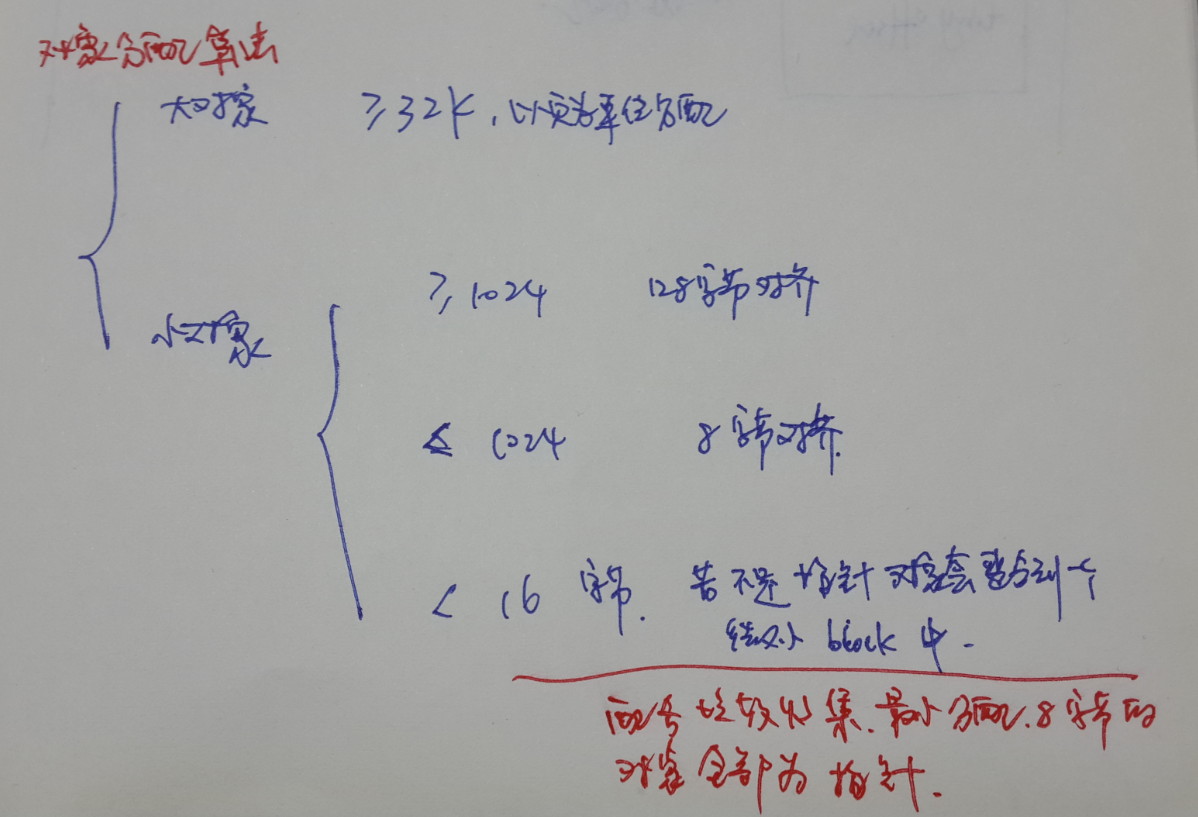 对象分配算法
大对象 ≥32K,以页为单位分配
≥1024 128字节对齐
小对象
≤ 1024 8字节对齐.
< 16 字节. 若不是指针对象会整合到一个
block 中.
配合垃圾收集.最小分配.8字节的
对象全部为指针.